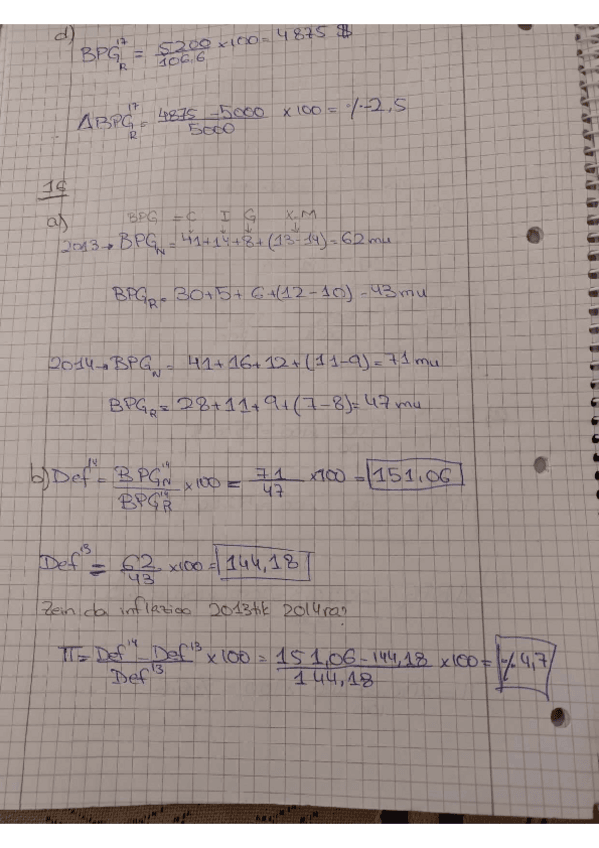 d) BPG_R^17 = 5200/106.6 x100 = 4875 $
ΔBPG_R^17 = 4875 - 5000/5000 x 100 = %-2,5
16
a) BPG = C I G X-M
2013→ BPG_N = 41+14+8+(13-14) = 62 mu
BPG_R = 30+5+6+(12-10) - 43 mu
2014→ BPG_N = 41+16+12+(11-9) = 71 mu
BPG_R = 28+11+9+(7-8) = 47 mu
b) Def^14 = BPG_N^14/BPG_R^14 x100 = 71/47 x100 = 151,06
Def^13 = 62/43 x100 = 144,18
Zein da inflazioa 2013tik 2014ra?
π = Def^14 - Def^13/Def^13 x100 = 151,06 - 144,18/144,18 x100 = % 4,7